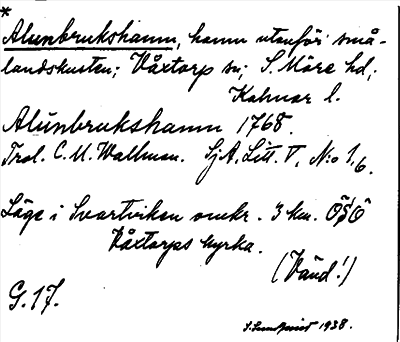 *
Alunbrukshamn, hamn utanför små-
landskusten; Våxtorp sn; S. Möre hd;
Kalmar l.
Alúnbrukshamn 1768.
Trol. C. U. Wallman. SjA, Litt. V, N:o 1,6.
Läge i Svartviken omkr. 3 km. ÖSÖ
Våxtorps kyrka.
(Vänd!)
G. 17.
1938.